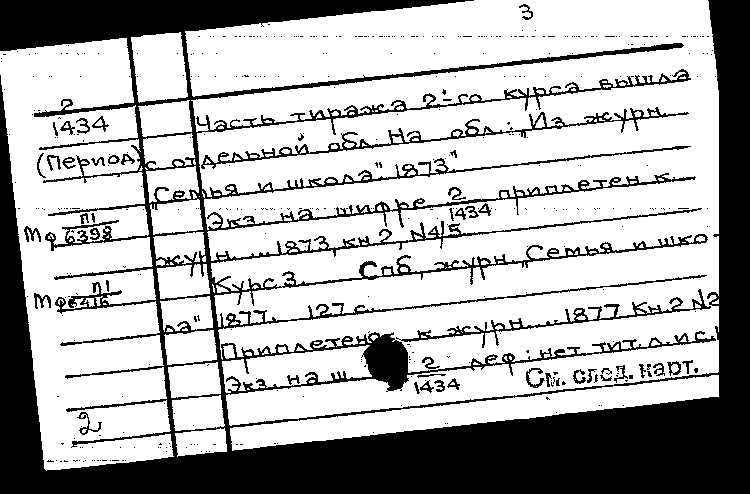 3
2
1434
(Период)
Часть тиража 2-го курса вышла
с отдельной обл. На обл.: „Из журн.
„Семья и школа". 1873."
Экз. на шифре 2/1434 приплетен к
Мф П1/6398
журн. ... 1873, кн. 2, N4/5
Курс 3. Спб, журн. „Семья и шко-
Мф П1/6416
ла" 1877. 127 с.
Приплетено к журн. ... 1877 Кн. 2 N2
Экз. на ш. 2/1434 деф: нет тит. л. и с.1
См. след. карт.
2